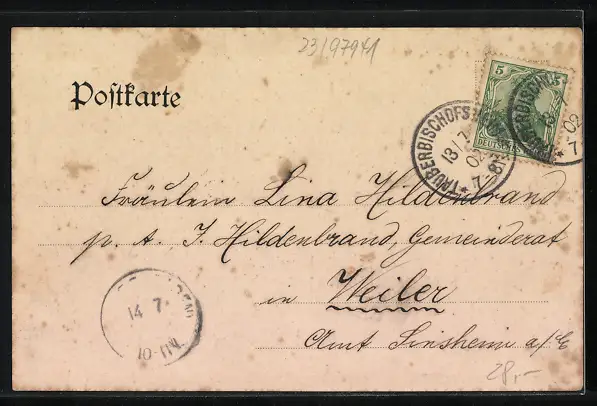 23/97941
Postkarte
5
DEUTSCHES
TAUBERBISCHOFSHEIM
13/7
02
7-8N
Fräulein Lina Hildenbrand
p. A. J. Hildenbrand, Gemeinderat
in Weiler
Amt Sinsheim a/E
14 7
10-11N
28,-